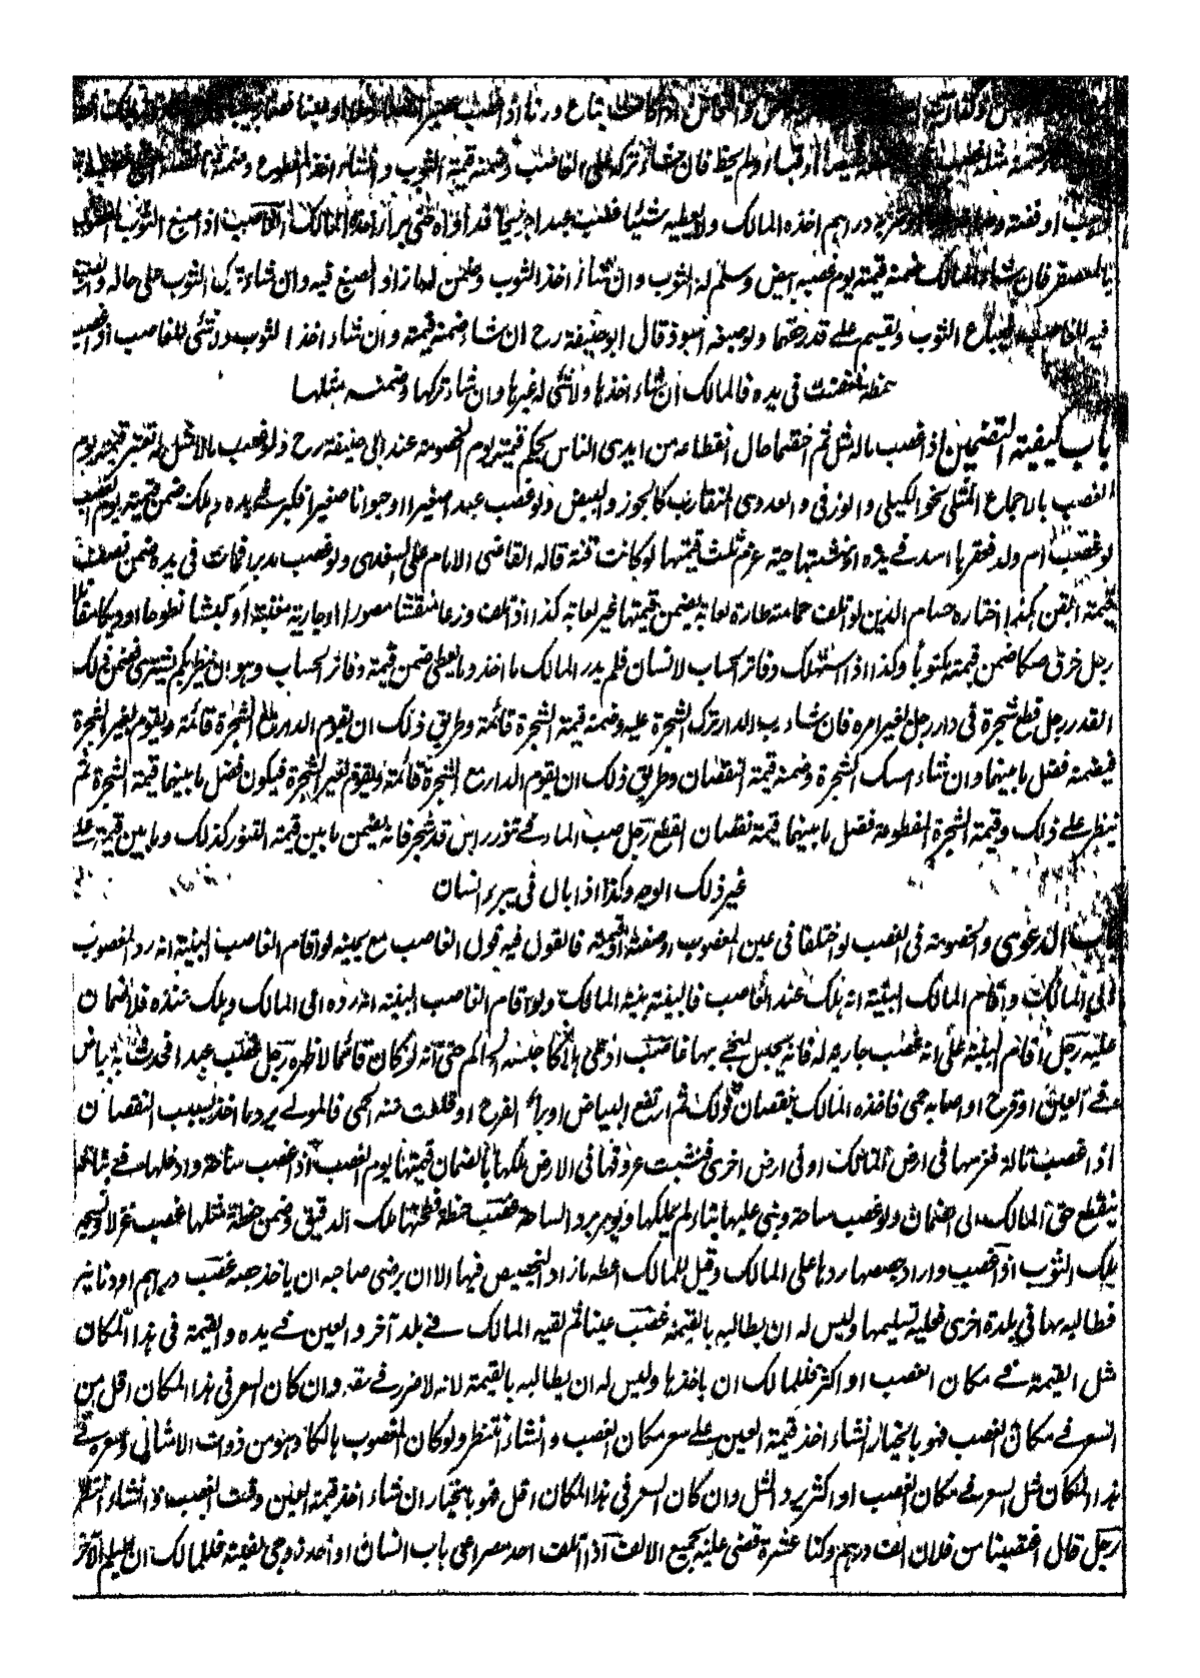 او قباء ولم يخط فان شاء تركه على الغاصب وضمنه قيمة الثوب وان شاء اخذ المقطوع وضمنه
دراهم اخذه المالك ولا يعطيه شيئا غصب عبدا اخذه المالك الغاصب اذا صبغ الثوب
بالعصفر فان شاء المالك ضمنه قيمته يوم غصبه ابيض وسلم له الثوب وان شاء اخذ الثوب وضمن له ما زاد الصبغ فيه وان شاء ترك الثوب على حاله
فيه للغاصب فيباع الثوب ويقسم على قدر حقهما ولو صبغه اسود قال ابو حنيفة رح ان شاء ضمنه قيمته وان شاء اخذ الثوب ولا شئ للغاصب
حنطة فعفنت في يده فالمالك ان شاء اخذها ولا شئ له غيرها وان شاء تركها وضمنه مثلها
باب كيفية التضمين اذا غصب ماله مثل ثم اختصما حال انقطاعه من ايدي الناس يحكم قيمته يوم الخصومة عند ابي حنيفة رح ولو غصب ما لا مثل له تعتبر قيمته يوم
الغصب بالاجماع المثلي نحو الكيلي والوزني والعددي المتقارب كالجوز والبيض ولو غصب عبدا صغيرا او حيوانا صغيرا فكبر في يده وهلك ضمن قيمته يوم الغصب
لو غصب ام ولد فعقرها اسد في يده او نهشتها حية غرم ثلث قيمتها لو كانت قنة قاله القاضي الامام علي السغدي ولو غصب مدبرا فمات في يده ضمن نصف
قيمته القن هكذا اختاره حسام الدين لو اتلف حمامة طيارة لعابة يضمن قيمتها غير لعابة كذا اذا اتلف وزعا منقشا مصورا او جارية مغنية او كبشا نطوحا او ديكا مقاتلا
رجل خرق صكا ضمن قيمته مكتوبا وكذا اذا استهلك دفاتر الحساب لانسان فلم يدر المالك ما اخذ وما يعطي ضمن قيمة دفاتر الحساب وهو ان ينظر بكم يشترى فيضمن ذلك
القدر رجل قطع شجرة في دار رجل بغير امره فان شاء رب الدار ترك الشجرة عليه وضمنه قيمة الشجرة قائمة وطريق ذلك ان يقوم الدار مع الشجرة قائمة ويقوم بغير الشجرة
فيضمنه فضل ما بينهما وان شاء امسك الشجرة وضمنه قيمة النقصان وطريق ذلك ان يقوم الدار مع الشجرة قائمة ويقوم بغير الشجرة فيكون فضل ما بينهما قيمة الشجرة ثم
ينظر على ذلك وقيمة الشجرة المقطوعة ففضل ما بينهما قيمة نقصان القطع رجل صب الماء في تنور انسان قد سجر فانه يضمن ما بين قيمة التنور كذلك وما بين قيمته على
غير ذلك الوجه وكذا اذا بال في بير انسان
باب الدعوى والخصومة في الغصب لو اختلفا في عين المغصوب او صفته او قيمته فالقول فيه قول الغاصب مع يمينه لو اقام الغاصب البينة انه رد المغصوب
الى المالك واقام المالك البينة انه هلك عند الغاصب فالبينة بينة المالك ولو اقام الغاصب البينة انه رده الى المالك وهلك عنده فلا ضمان
عليه رجل اقام البينة على انه غصب جاريه له فانه يحبس ليجئ بها غاصب ادعى هلاكا حبسه الحاكم حتى انه لو كان قائما لاظهره رجل غصب عبدا فحدث به بياض
في العين او قرح او اصابه حمى فاخذه المالك بنقصان ذلك ثم ارتفع البياض او برأ القرح او قلعت عنه الحمى فالمولى يرد ما اخذ بسبب النقصان
اذا غصب تالة فغرسها في ارض المالك او في ارض اخرى فنبتت عروقها في الارض ملكها بالضمان قيمتها يوم الغصب اذا غصب ساحة وادخلها في بنائه
ينقطع حق المالك الى الضمان ولو غصب ساحة وبنى عليها بناء لم يملكها ويؤمر برد الساحة غصب حنطة فطحنها ملك الدقيق وضمن حنطة مثلها غصب غزلا ونسجه
يملك الثوب اذا غصب دارا وجصصها ردها على المالك وقيل للمالك اعطه ما زاد التجصيص فيها الا ان يرضى صاحبه ان ياخذ جصه غصب دراهم او دنانير
فطالبه بها في بلدة اخرى فعليه تسليمها وليس له ان يطالبه بالقيمة غصب عينا ثم لقيه المالك في بلد آخر والعين في يده والقيمة في هذا المكان
مثل القيمة في مكان الغصب او اكثر فللمالك ان ياخذها وليس له ان يطالبه بالقيمة لانه لا ضرر في حقه وان كان السعر في هذا المكان اقل من
السعر في مكان الغصب فهو بالخيار ان شاء اخذ قيمة العين على سعر مكان الغصب وان شاء انتظر ولو كان المغصوب هالكا وهو من ذوات الامثال وسعره في
هذا المكان مثل السعر في مكان الغصب او اكثر يرد المثل وان كان السعر في هذا المكان اقل فهو بالخيار ان شاء اخذ قيمة العين وقت الغصب وان شاء انتظر
رجل قال اغتصبنا من فلان الف درهم وكنا عشرة قضى عليه بجميع الالف اذا اتلف احد مصراعي باب انسان او احد زوجي خفيه فللمالك ان يسلم الآخر